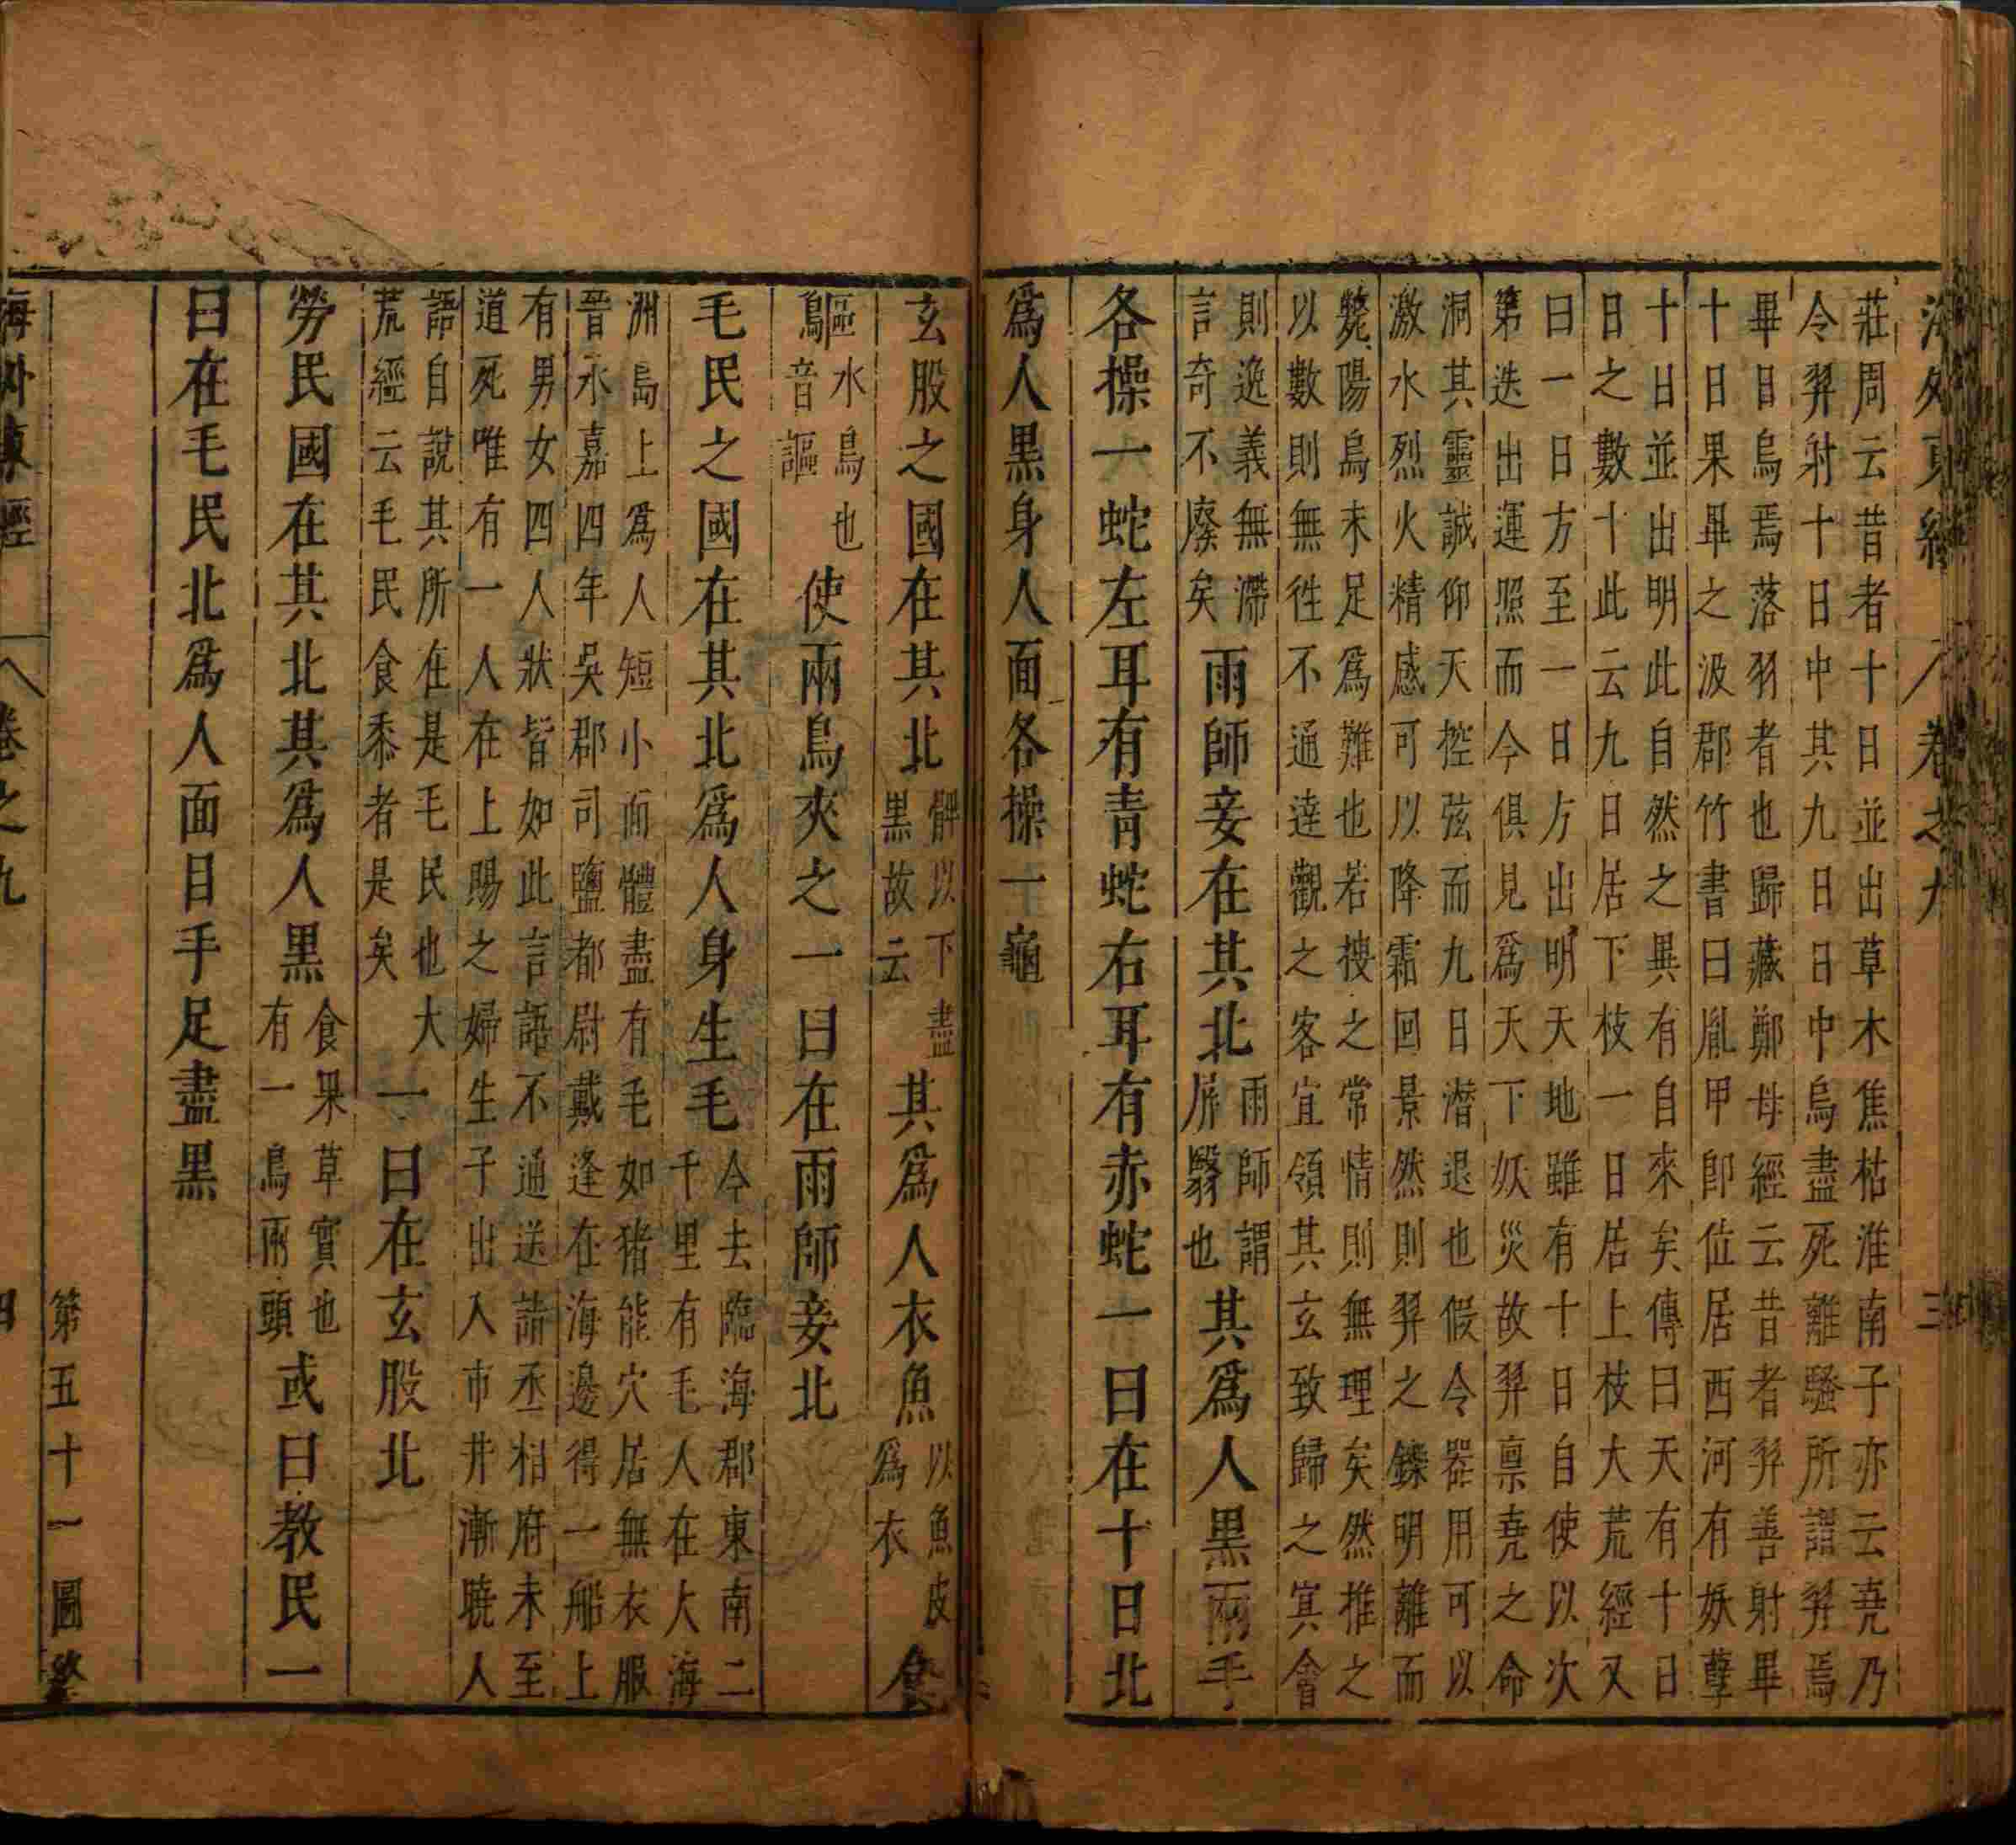 海外東經 卷之九 三
莊周云昔者十日並出草木焦枯淮南子亦云堯乃
令羿射十日中其九日日中烏盡死離騷所謂羿焉
畢日烏焉落羽者也歸藏鄭母經云昔者羿善射畢
十日果畢之汲郡竹書曰胤甲即位居西河有妖孽
十日並出明此自然之異有自來矣傳曰天有十日
日之數十此云九日居下枝一日居上枝大荒經又
曰一日方至一日方出明天地雖有十日自使以次
第迭出運照而今俱見為天下妖災故羿稟堯之命
洞其靈誠仰天控弦而九日潛退也假令器用可以
激水烈火精感可以降霜回景然則羿之鑠明離而
斃陽烏未足為難也若搜之常情則無理矣然推之
以數則無往不通達觀之客宜領其玄致歸之冥會
則逸義無滯
言奇不廢矣
雨師妾在其北
雨師謂
屏翳也
其為人黑兩手
各操一蛇左耳有青蛇右耳有赤蛇一曰在十日北
為人黑身人面各操一龜
玄股之國在其北
髀以下盡
黑故云
其為人衣魚
以魚皮
為衣
食
䳼
水鳥也
音謳
使兩鳥夾之一曰在雨師妾北
毛民之國在其北為人身生毛
今去臨海郡東南二
千里有毛人在大海
洲島上為人短小面體盡有毛如猪能穴居無衣服
晉永嘉四年吳郡司鹽都尉戴逢在海邊得一船上
有男女四人狀皆如此言語不通送詣丞相府未至
道死唯有一人在上賜之婦生子出入市井漸曉人
語自說其所在是毛民也大
荒經云毛民食黍者是矣
一曰在玄股北
勞民國在其北其為人黑
食果草實也
有一鳥兩頭
或曰教民一
曰在毛民北為人面目手足盡黑
第五十一圖終
海外東經 卷之九 四